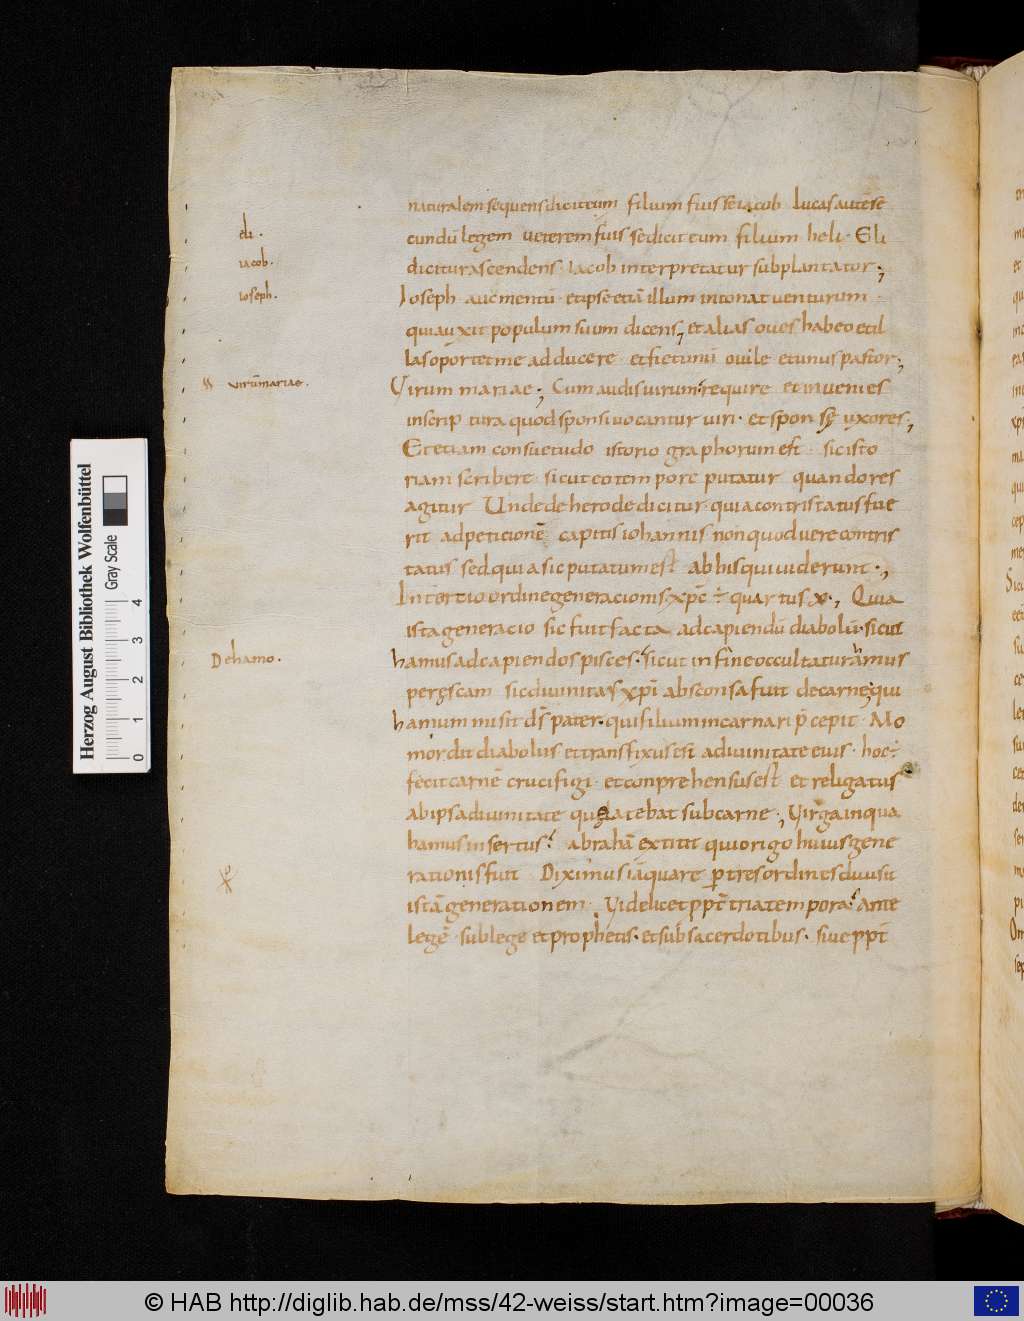 naturalem sequens dicit eum filium fuisse iacob lucas autē se
eli.
cundū legem veterem fuisse dicit eum filium heli· Eli
iacob.
dicitur ascendens· iacob interpretatur subplantator;
ioseph.
Ioseph aucmentū· et ipse etiā illum intonat venturum·
qui auxit populum suum dicens, et alias oves habeo et il
las oportet me adducere· et fiet unū ovile et unus pastor;
virū mariae.
Virum mariae; Cum audis virum· require et invenies
inscriptura quod sponsi vocantur viri· et sponsę uxores;
Et etiam consuetudo istorio graphorum est· sic isto
riam scribere· sicut eo tempore putatur quando res
agitur Unde de herode dicitur quia contristatus fue
rit ad peticionē capitis iohannis non quod vere contris
tatus sed quia sic putatum est ab his qui viderunt·,
In tertio ordine generacionis xpī ÷ quartus x·, Quia
ista generacio sic fuit facta ad capiendū diabolū· sicut
De hamo.
hamus ad capiendos pisces· sicut in fine occultatur āmus
per escam sic divinitas xpī absconsa fuit de carne; qui
hamum misit dš pater· qui filium incarnari p̄cepit· Mo
mordit diabolus et transfixus est a divinitate eius· hoc ÷
fecit carnē crucifigi· et conprehensus est et religatus
ab ipsa divinitate quę latebat sub carne·, Virga in qua
hamus insertus· abrahā extitit qui origo huius gene
rationis fuit Diximus iā quare p tres ordines divisit
istā generationem· Videlicet ppt̄ tria tempora· Ante
legē· sub lege et prophetis· et sub sacerdotibus· sive ppt̄
Herzog August Bibliothek Wolfenbüttel
Gray Scale
0 1 2 3 4
© HAB http://diglib.hab.de/mss/42-weiss/start.htm?image=00036